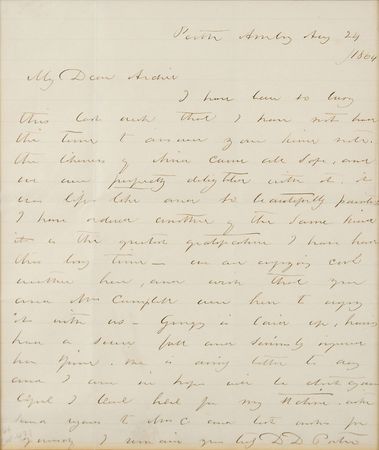 Perth Amboy Aug 24
/1864
My Dear Ardier
I have been so busy
this last week that I have not had
the time to answer your kind note.
the of china came all safe, and
we are perfectly delighted with it. it
was life like and so beautifully painted
I have ordered another of the same kind
it is the greatest gratification I have had
this long time — we are enjoying cool
weather here, and wish that you
and Mrs Campbell were here to enjoy
it with us — is laid up, having
had a severe fall and seriously injured
her . She is doing better to day
and I am in hopes will be about again
before I leave here for my Station. with
kind regards to Mrs C and best wishes for
yourself I remain yours truly D D Porter